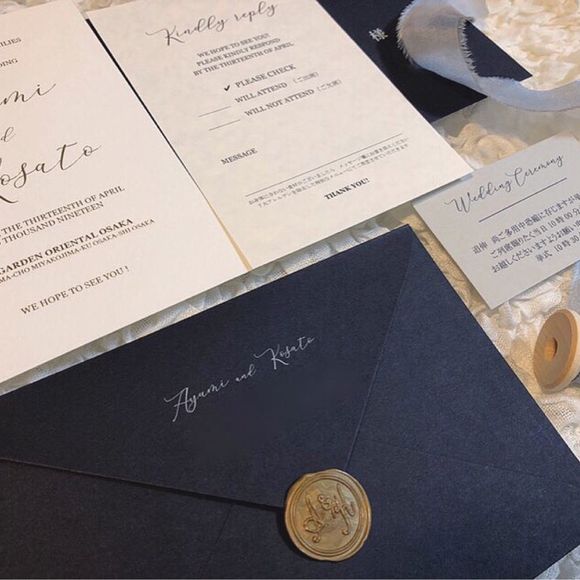 ILIES
DING
umi
nd
Kosato
THE THIRTEENTH OF APRIL
THOUSAND NINETEEN
GARDEN ORIENTAL OSAKA
MA-CHO MIYAKOJIMA-KU OSAKA-SHI OSAKA
WE HOPE TO SEE YOU !
Kindly reply
WE HOPE TO SEE YOU!
PLEASE KINDLY RESPOND
BY THE THIRTEENTH OF APRIL
✓ PLEASE CHECK
WILL ATTEND (ご出席)
WILL NOT ATTEND (ご欠席)
MESSAGE
THANK YOU!!
様
Wedding Ceremony
追伸 尚ご多用中恐縮に存じますが
ご列席賜りたく当日10時00分
お越しくださいますようお願い
挙式 10時
Ayumi and Kosato